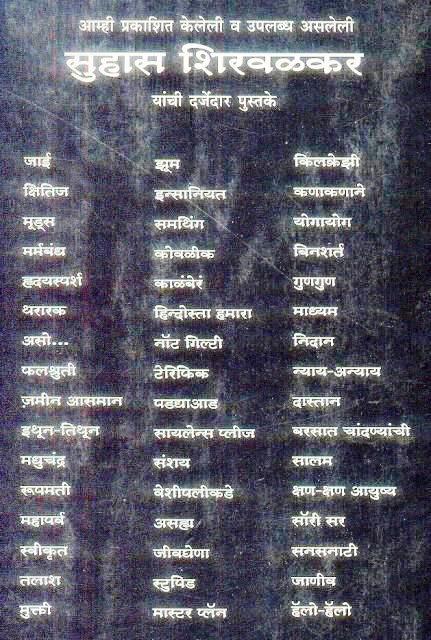 आम्ही प्रकाशित केलेली व उपलब्ध असलेली
सुहास शिरवळकर
यांची दर्जेदार पुस्तके
जाई
क्षितिज
मूड्स
मर्मबंध
हृदयस्पर्श
थरारक
असो...
फलश्रुती
ज़मीन आसमान
इथून-तिथून
मधुचंद्र
रूपमती
महापर्व
स्वीकृत
तलाश
मुक्ती
झूम
इन्सानियत
समथिंग
कोवळीक
काळंबेरं
हिन्दोस्ता हमारा
नॉट गिल्टी
टेरिफिक
पडद्याआड
सायलेन्स प्लीज
संशय
वेशीपलीकडे
असह्य
जीवघेणा
स्टुपिड
मास्टर प्लॅन
किलक्रेझी
कणाकणाने
योगायोग
बिनशर्त
गुणगुण
माध्यम
निदान
न्याय-अन्याय
दास्तान
बरसात चांदण्यांची
सालम
क्षण-क्षण आयुष्य
सॉरी सर
सनसनाटी
जाणीव
हॅलो-हॅलो